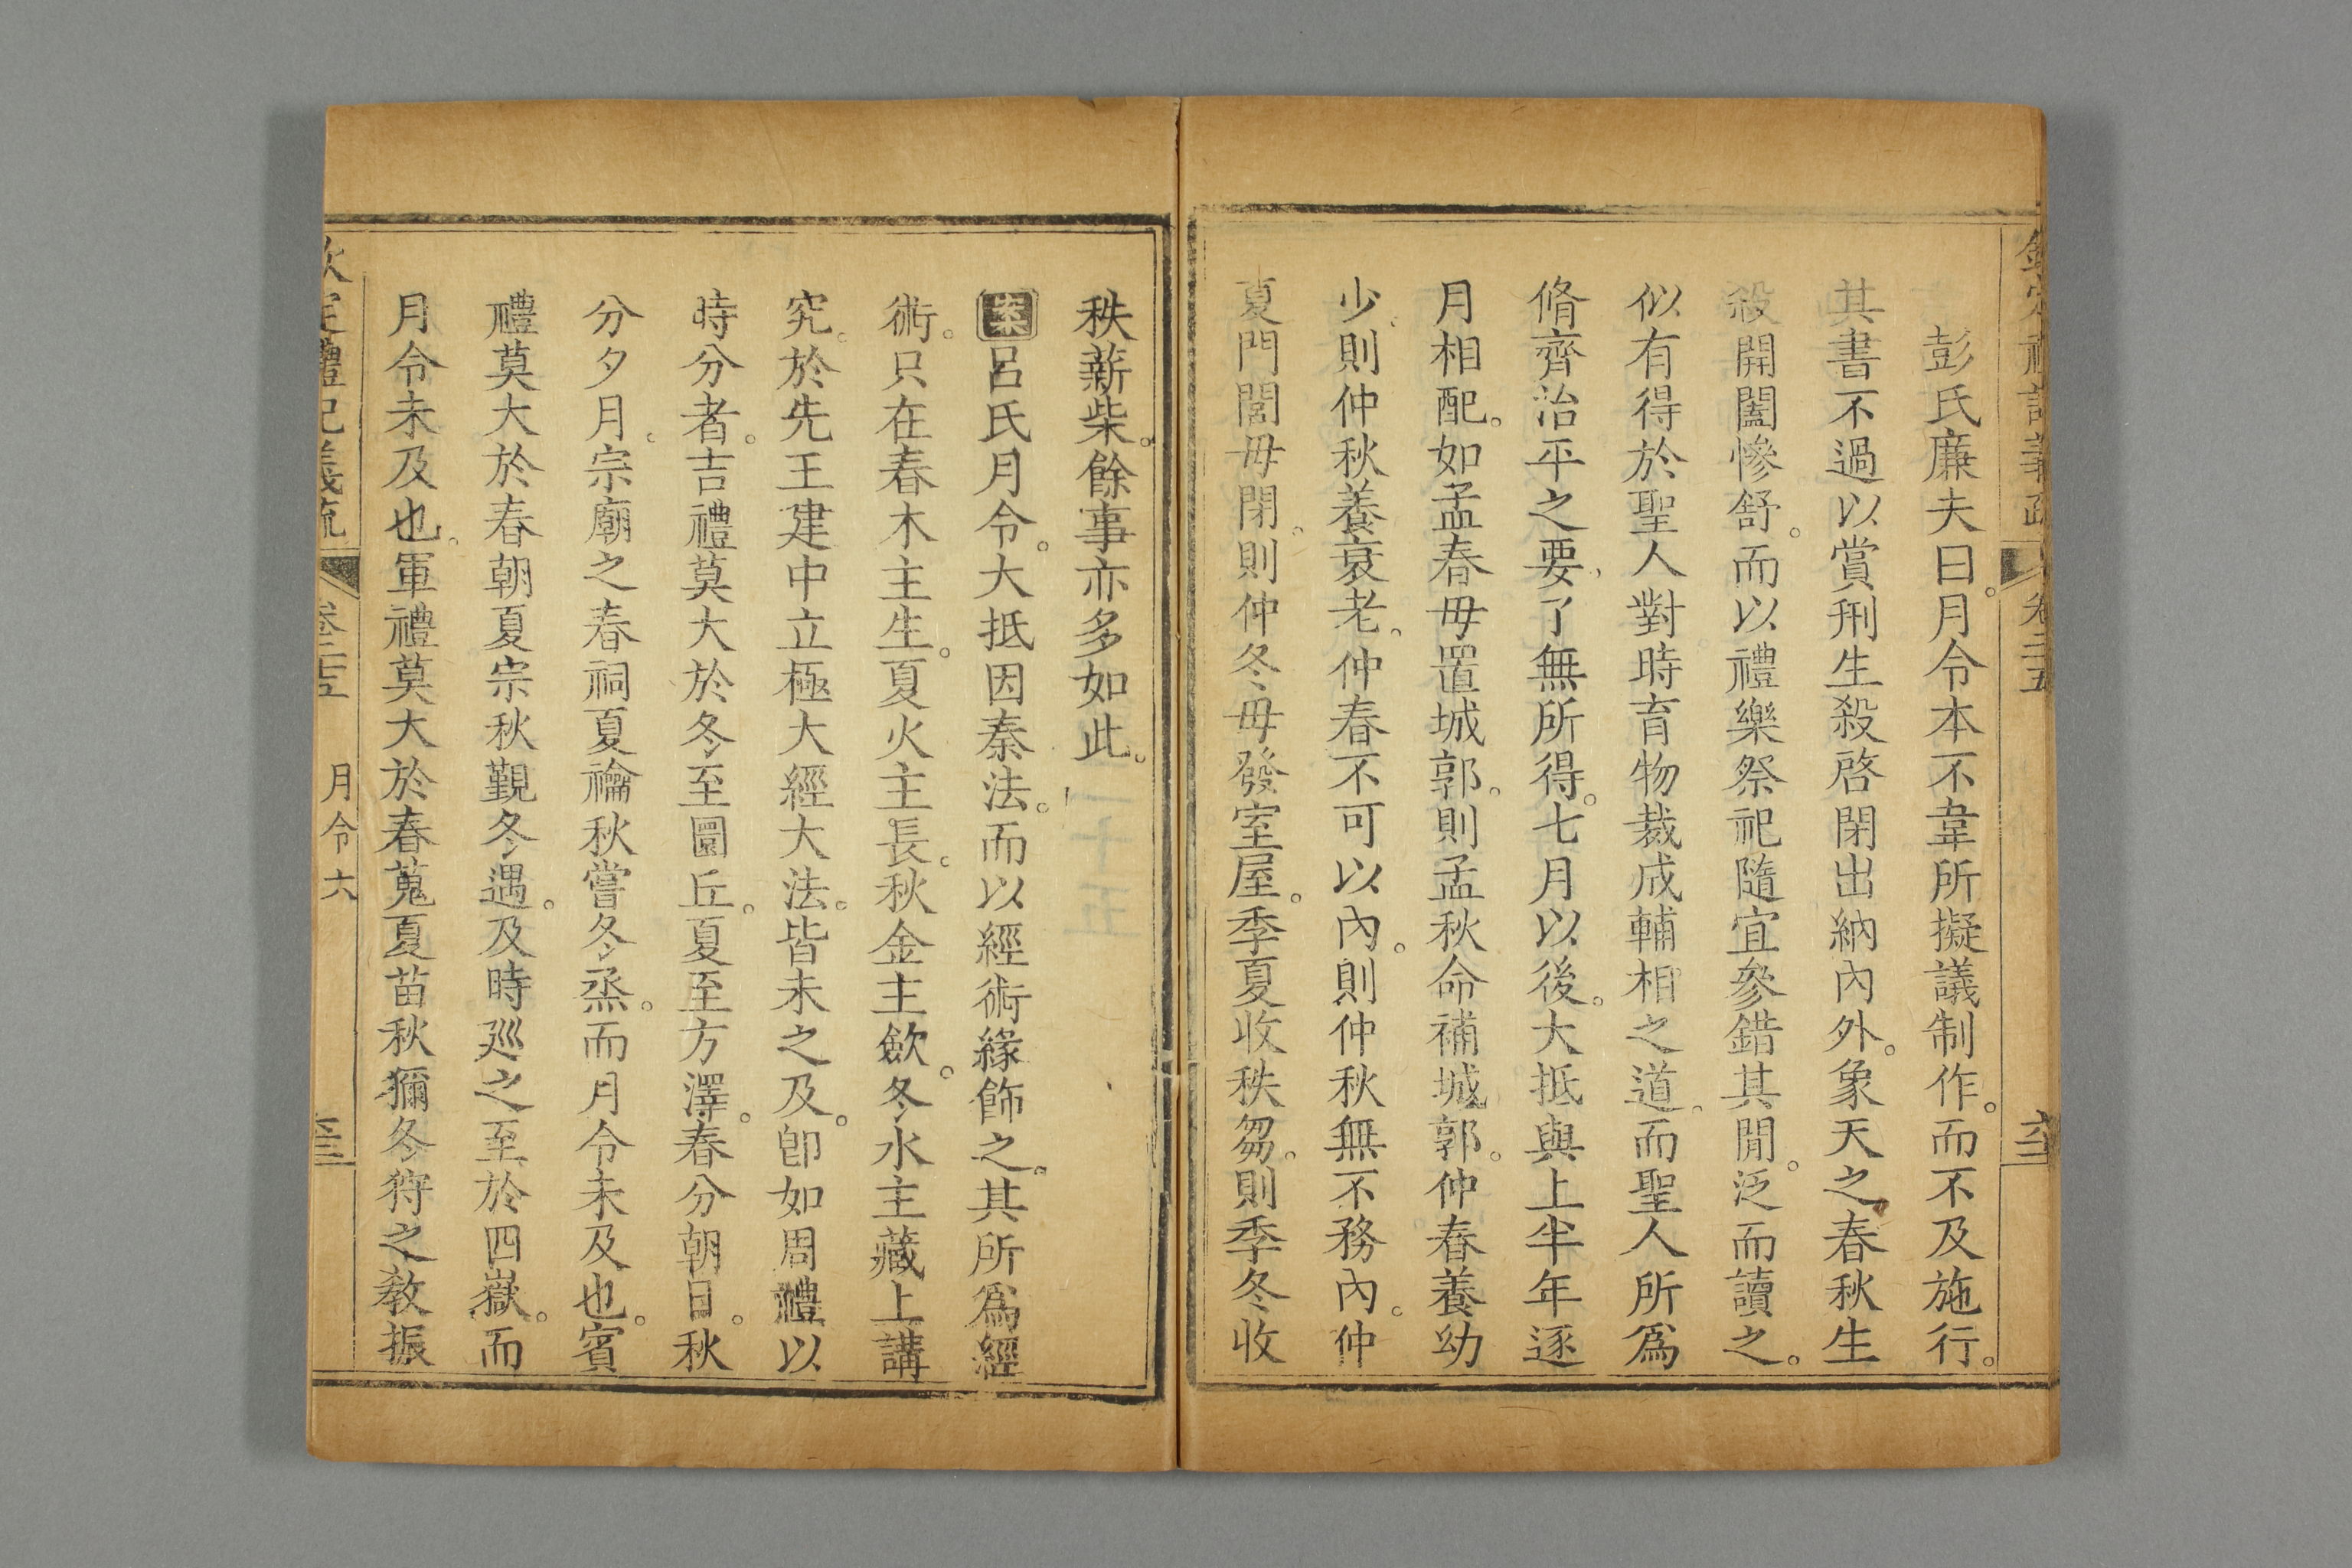 欽定禮記義疏 卷二十五 六十三
彭氏廉夫曰。月令本不韋所擬議制作。而不及施行。
其書不過以賞刑生殺啓閉出納內外。象天之春秋生
殺開闔慘舒。而以禮樂祭祀隨宜參錯其閒。泛而讀之。
似有得於聖人對時育物裁成輔相之道。而聖人所爲
脩齊治平之要。了無所得。七月以後。大抵與上半年逐
月相配。如孟春毋置城郭。則孟秋命補城郭。仲春養幼
少。則仲秋養衰老。仲春不可以內。則仲秋無不務內。仲
夏門閭毋閉。則仲冬毋發室屋。季夏收秩芻。則季冬收
秩薪柴。餘事亦多如此。
案呂氏月令。大抵因秦法。而以經術緣飾之。其所爲經
術。只在春木主生。夏火主長。秋金主斂。冬水主藏上講
究。於先王建中立極大經大法。皆未之及。卽如周禮以
時分者。吉禮莫大於冬至圜丘。夏至方澤。春分朝日。秋
分夕月。宗廟之春祠夏禴秋嘗冬烝。而月令未及也。賓
禮莫大於春朝夏宗秋覲冬遇。及時巡之至於四嶽。而
月令未及也。軍禮莫大於春蒐夏苗秋獮冬狩之敎振
欽定禮記義疏 卷二十五 月令六 六十三